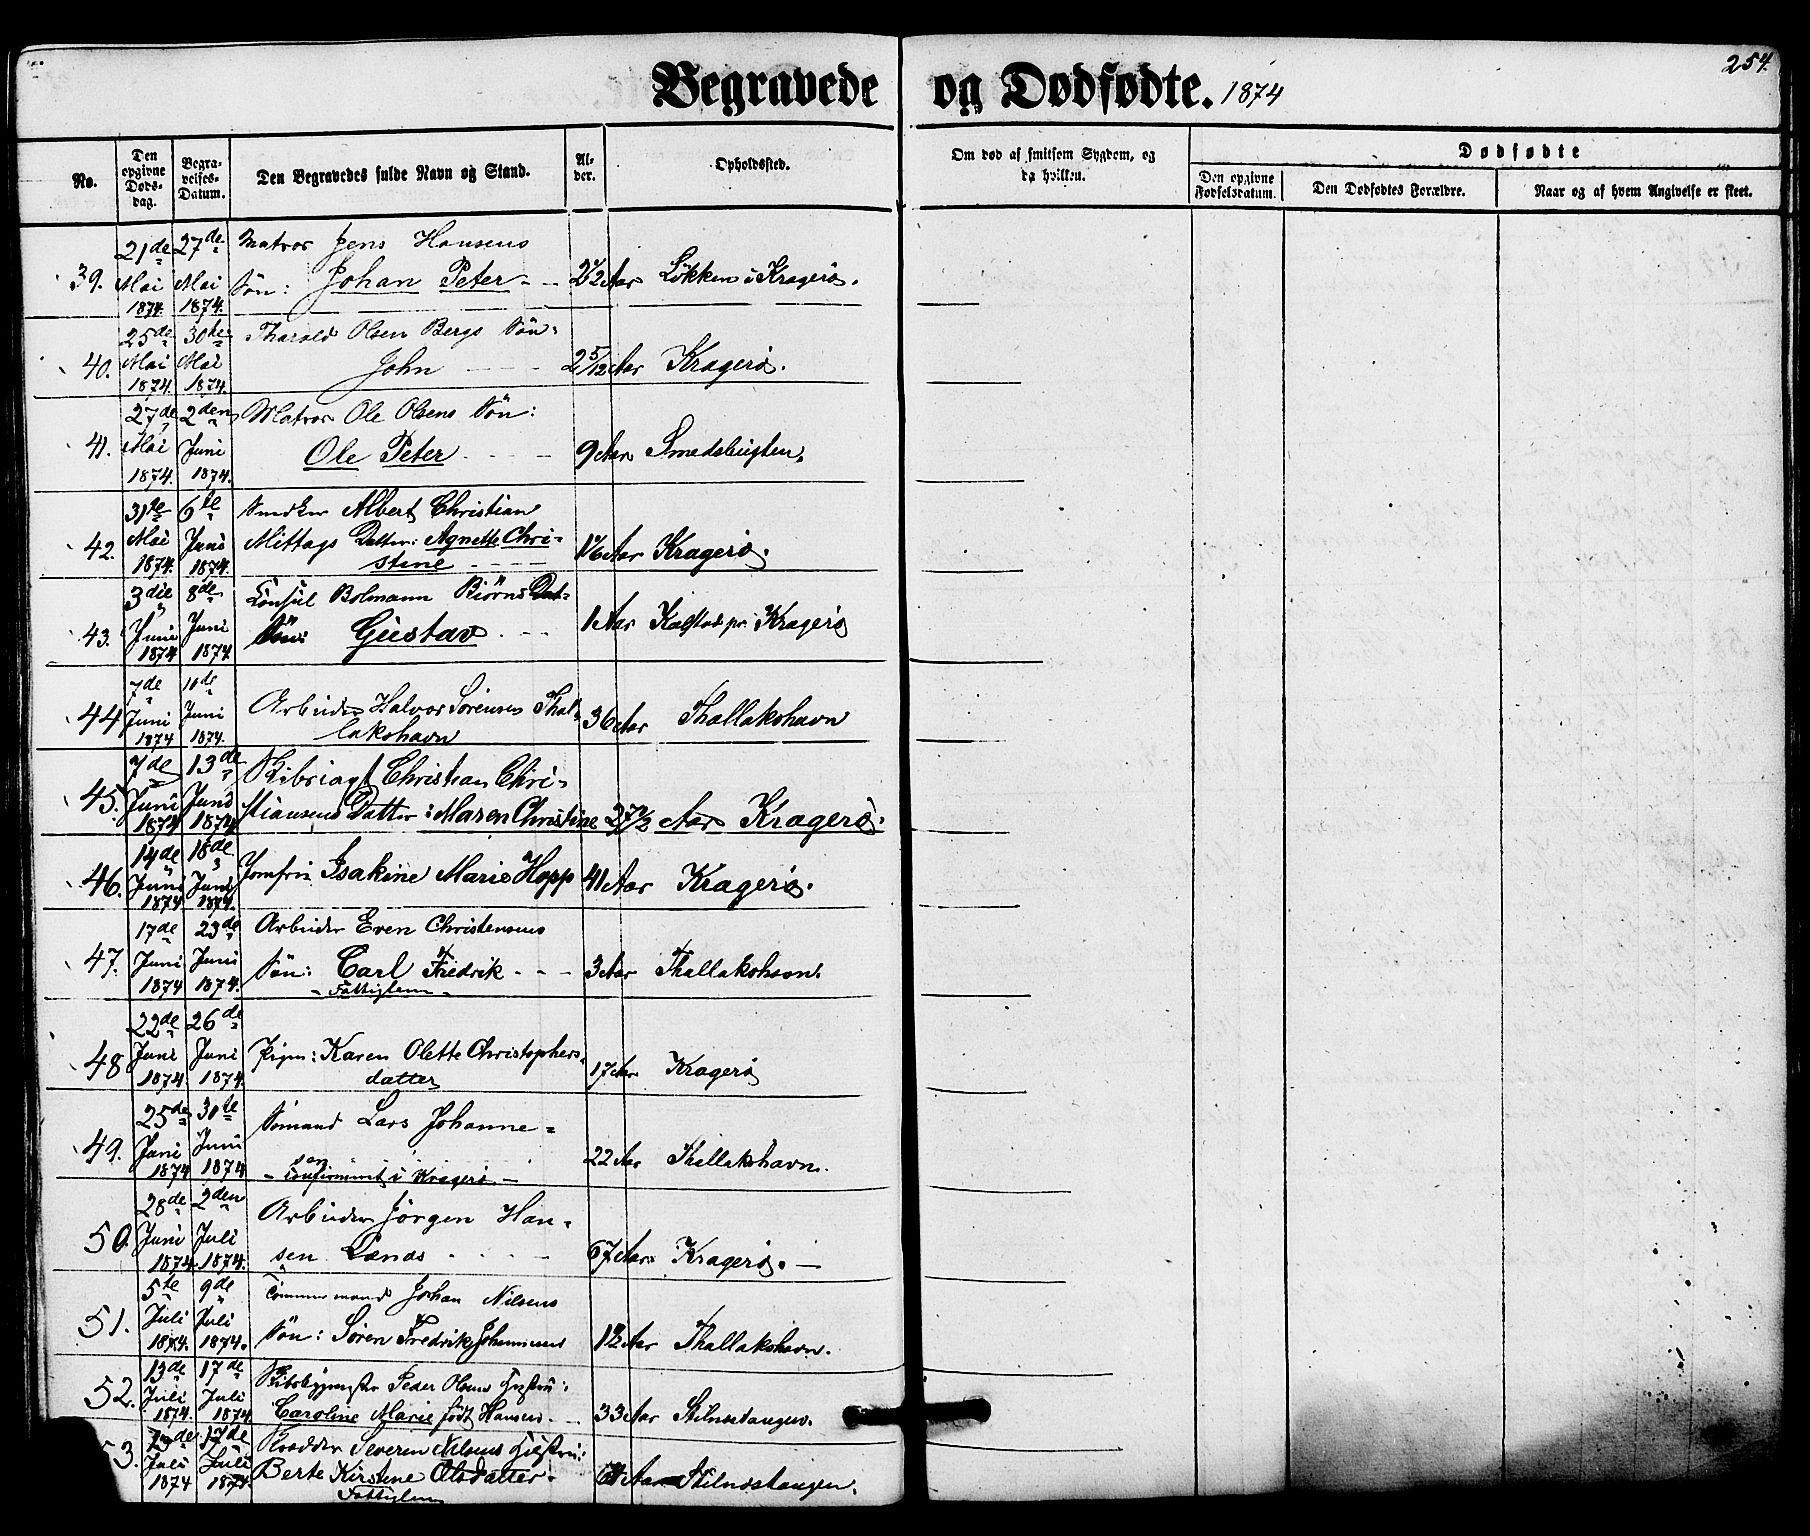 254.
Begravede og Dødfødte. 1874
No.
Den opgivne Døds-dag.
Begra-velses-Datum.
Den Begravedes fulde Navn og Stand.
Al-der.
Opholdssted.
Om død af smitsom Sygdom, og da hvilken.
Dødfødte
Den opgivne Fødselsdatum.
Den Dødfødtes Forældre.
Naar og af hvem Angivelse er skeet.
39. 21de Mai 1874. 27de Mai 1874. Matros Jens Hansens
Søn: Johan Peter - - Aar Løkken i Kragerø.
40. 25de Mai 1874. 30te Mai 1874. Tharald Olsen Bergs Søn:
John - - - 2 5/12 Aar Kragerø.
41. 27de Mai 1874. 2den Juni 1874. Matros Ole Olsens Søn:
Ole Peter - - - 9 Aar Smedsbugten.
42. 31te Mai 1874. 6te Juni 1874. Snedker Albert Christian
Mittags Datter: Agnette Chri-
stine - - - Aar Kragerø.
43. 3die Juni 1874 8de Juni 1874. Consul Bolmann Biørns
Søn: Gustav - - - 1 Aar Kalstad pr. Kragerø
44. 7de Juni 1874 10de Juni 1874. Arbeider Halvor Sørensen Thal-
lakshavn 36 Aar Thallakshavn
45. 7de Juni 1874 13de Juni 1874. Christian Chri-
stiansens Datter: Maren Christine Aar Kragerø.
46. 14de Juni 1874 18de Juni 1874. Jomfru Isakine Marie Hopp 41 Aar Kragerø.
47. 17de Juni 1874 23de Juni 1874. Arbeider Even Christensens
Søn: Carl Fredrik - - - 3 Aar Thallakshavn.
- Fattiglem -
48 22de Juni 1874. 26de Juni 1874. Pigen: Karen Olette Christophers-
datter 17 Aar Kragerø
49. 25de Juni 1874 30te Juni 1874 Sømand Lars Johanne-
sen
- Confirmeret i Kragerø - 22 Aar Thallakshavn.
50. 28de Juni 1874 2den Juli 1874. Arbeider Jørgen Han-
sen Lands - - - 67 Aar Kragerø. -
51. 5te Juli 1874. 9de Juli 1874. Tømmermand Johan Nilsens
Søn: Søren Fredrik Johannesen Aar Thallakshavn.
52. 13de Juli 1874. 17de Juli 1874 Skibsbygmester Peder Olsens Hustru:
Caroline Marie født Hansen - - 33 Aar Stilnestangen.
53. 13de Juli 1874 17de Juli 1874. Severin Nilsens Hustru:
Berte Kirstine Olsdatter - Aar Stilnestangen.
Fattiglem